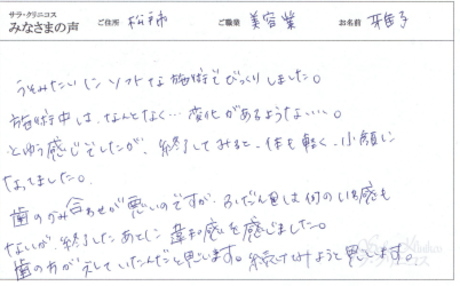 サラ・クリニコス
みなさまの声 ご住所 松戸市 ご職業 美容業 お名前 雅子
うそみたいにソフトな施術でびっくりしました。
施術中は、なんとなく…変化があるようなない。
とゆう感じでしたが、終了してみると、体も軽く、小顔に
なってました。
歯のかみ合わせが悪いのですが、ふだん 何の 感も
ないが、終了したあとに違和感を感じました。
歯の方が していたんだと思います。続けようと思います。